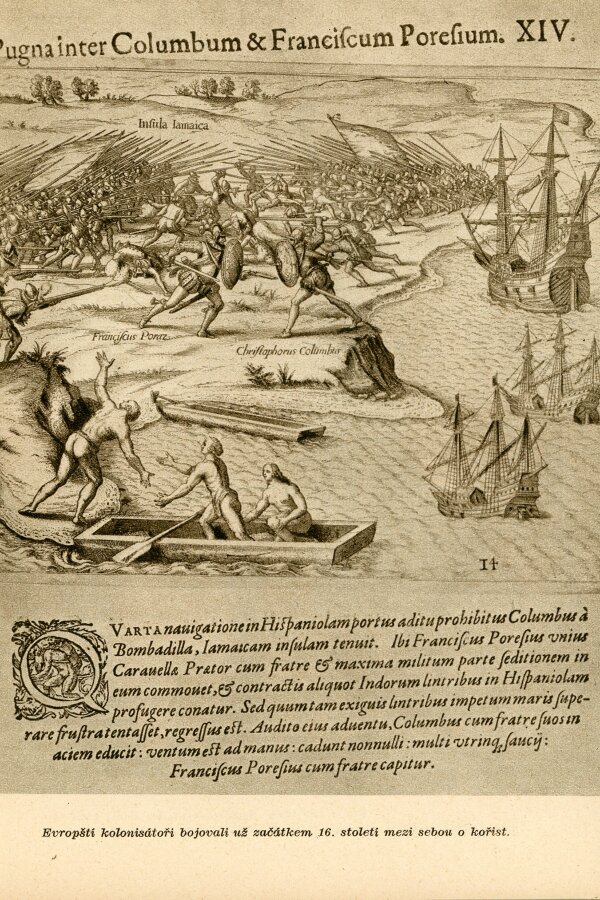 Pugna inter Columbum & Franciſcum Poreſium. XIV.
Inſula Iamaica
Franciſcus Poraz.
Chriſtophorus Columbus
14
QVARTA nauigatione in Hiſpaniolam portus aditu prohibitus Columbus à
Bombadilla, Iamaicam inſulam tenuit. Ibi Franciſcus Poreſius vnius
Carauellæ Prætor cum fratre & maxima militum parte ſeditionem in
eum commouet, & contractis aliquot Indorum lintribus in Hiſpaniolam
profugere conatur. Sed quum tam exiguis lintribus impetum maris ſupe-
rare fruſtra tentaſſet, regreſſus eſt. Audito eius aduentu, Columbus cum fratre ſuos in
aciem educit: ventum eſt ad manus: cadunt nonnulli: multi vtrinq, ſaucij:
Franciſcus Poreſius cum fratre capitur.
Evropští kolonisátoři bojovali už začátkem 16. století mezi sebou o kořist.